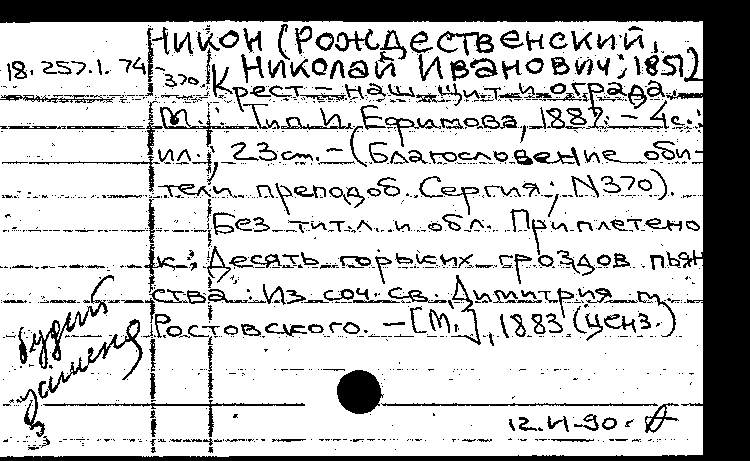 НИКОН (РОЖДЕСТВЕНСКИЙ,
18.257.1.74 НИКОЛАЙ ИВАНОВИЧ; 1851)
-370 Крест – наш щит и ограда.
М.: Тип. И. Ефимова, 1887. – 4с.:
ил.; 23см. – (Благословение оби-
тели преподоб. Сергия; N370).
Без тит.л. и обл. Приплетено
к: Десять горьких гроздов пьян
ства: Из соч. св. Димитрия м.
Ростовского. – [М.], 1883 (ценз.)
будет
12.VI-90.